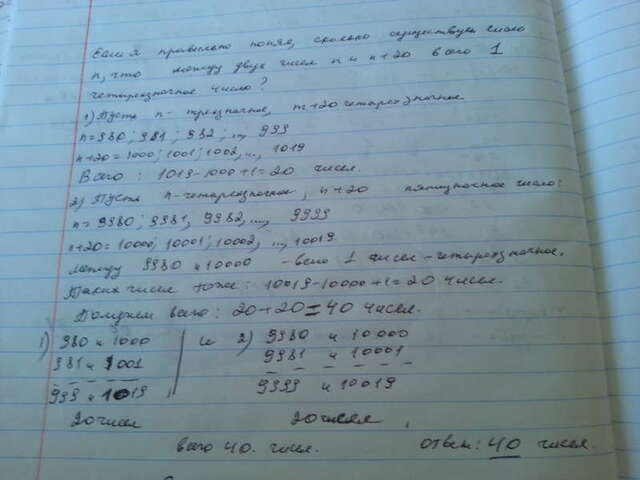 Если я правильно понял, сколько существует число
n, что между двух чисел n и n+20 всего 1
четырехзначное число?
1) Пусть n - трехзначное, n+20 четырехзначное
n=980; 981; 982; ..., 999
n+20=1000; 1001; 1002, ..., 1019
Всего: 1019-1000+1=20 чисел.
2) Пусть n-четырехзначное, n+20 пятизначное число:
n=9980; 9981, 9982, ..., 9999
n+20=10000; 10001; 10002, ..., 10019
между 9980 и 10000 - всего 1 чисел-четырехзначное.
Таких чисел тоже: 10019-10000+1=20 чисел.
Получаем всего: 20+20=40 чисел.
1) 980 и 1000 и 2) 9980 и 10000
981 и 1001 9981 и 10001
999 и 1019 9999 и 10019
20 чисел 20 чисел
всего 40. чисел. ответ: 40 чисел.